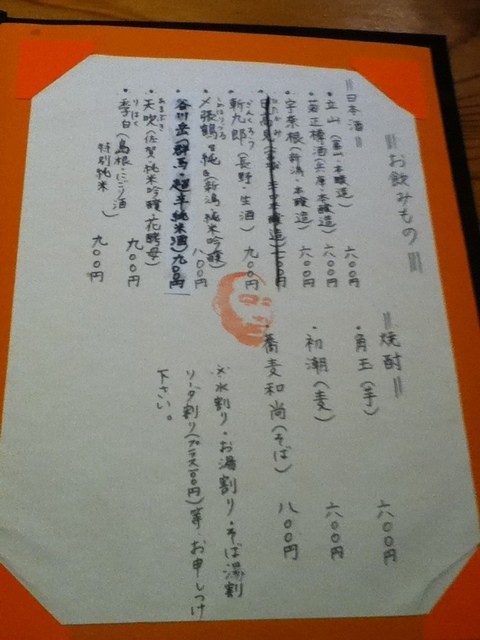 お飲みもの
日本酒
・立山(富山・本醸造) 六〇〇円
・菊正樽酒(兵庫・本醸造) 六〇〇円
・宇奈根(新潟・本醸造) 六〇〇円
・日高見
ひたかみ
・斬九郎(長野・生酒) 九〇〇円
ざんくろう
・〆張鶴 純(新潟・純米吟醸) 八〇〇円
しめはりつる
・谷川岳(群馬・超辛純米酒)九〇〇円
・天吹(佐賀・純米吟醸・花酵母) 九〇〇円
あまぶき
・李白(島根・にごり酒 特別純米) 九〇〇円
りはく
焼酎
・角玉(芋) 六〇〇円
・初潮(麦) 六〇〇円
・蕎麦和尚(そば) 八〇〇円
※水割り・お湯割り・そば湯割
ソーダ割り(プラス100円)等、お申しつけ
下さい。